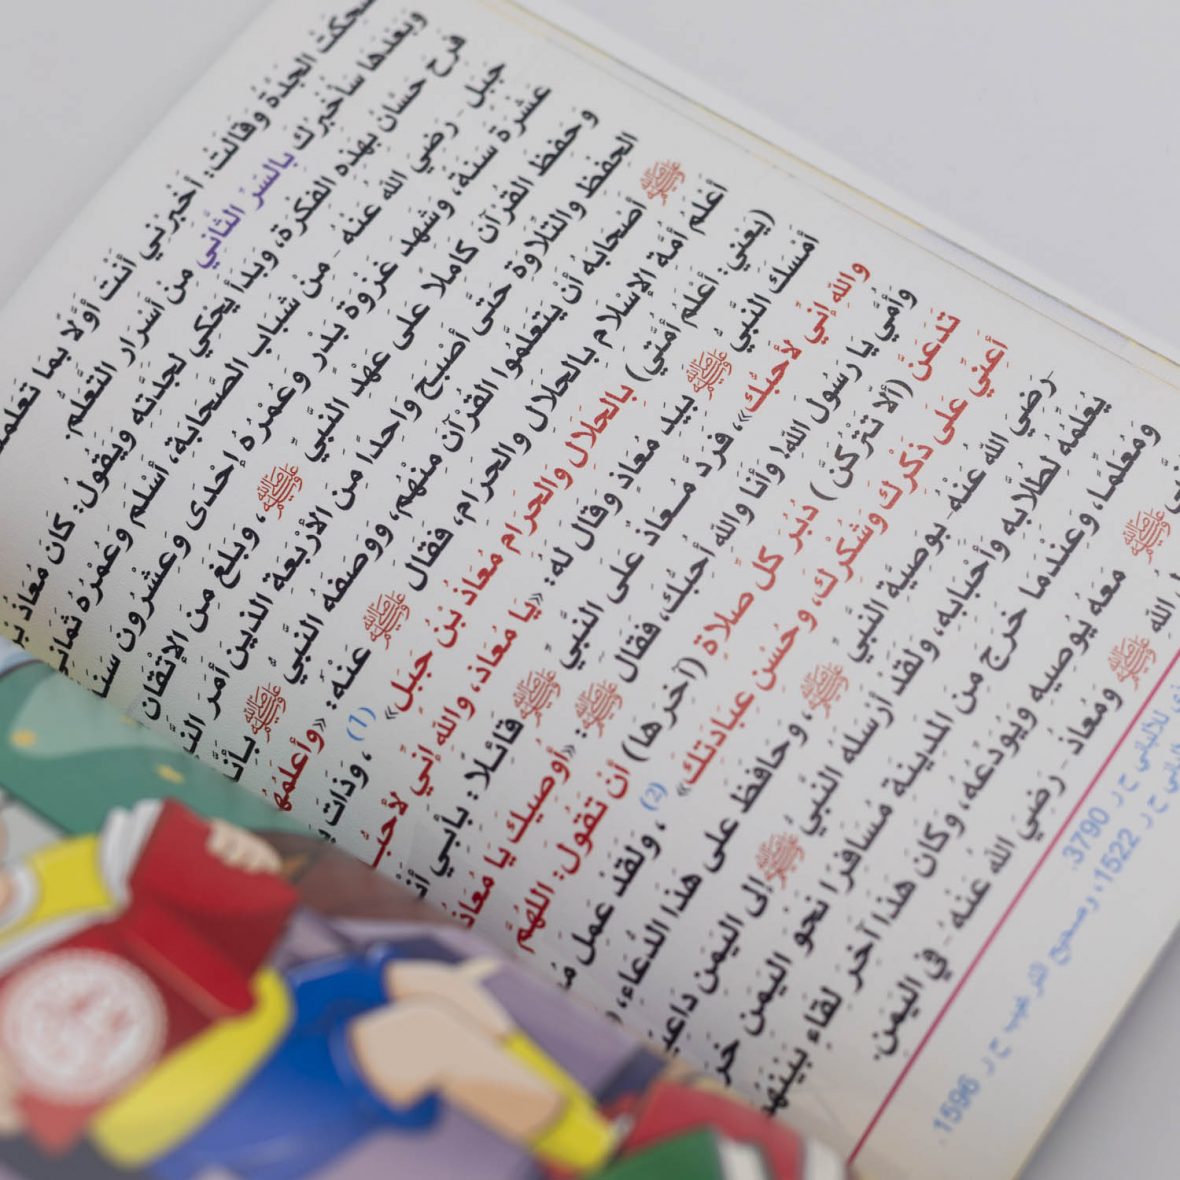 ضحكت الجدة وقالت: أخبرني أنت أولا بما تعلمت
وبعدها سأخبرك بالسر الثاني من أسرار التعلم.
فرح حسان بهذه الفكرة، وبدأ يحكي لجدته ويقول: كان معاذ بن
جبل - رضي الله عنه - من شباب الصحابة، أسلم وعمره ثماني
عشرة سنة، وشهد غزوة بدر وعمره إحدى وعشرون سنة
وحفظ القرآن كاملا على عهد النبي ﷺ، وبلغ من الإتقان
الحفظ والتلاوة حتى أصبح واحدا من الأربعة الذين أمر
ﷺ أصحابه أن يتعلموا القرآن منهم، ووصفه النبي ﷺ بأنه
أعلم أمة الإسلام بالحلال والحرام، فقال ﷺ عنه: «وأعلمها
(يعني: أعلم أمتي) بالحلال والحرام معاذ بن جبل» (1)، وذات
أمسك النبي ﷺ بيد معاذ وقال له: «يا معاذ، والله إني لأحبك
والله إني لأحبك»، فرد معاذ على النبي ﷺ قائلا: بأبي أنت
وأمي يا رسول الله! وأنا والله أحبك، فقال ﷺ: «أوصيك يا معاذ
تدعن (ألا تتركن) دبر كل صلاة (آخرها) أن تقول: اللهم
أعني على ذكرك وشكرك، وحسن عبادتك» (2)، ولقد عمل
رضي الله عنه - بوصية النبي ﷺ، وحافظ على هذا الدعاء،
يعلمه لطلابه وأحبابه، ولقد أرسله النبي ﷺ إلى اليمن
ومعلما، وعندما خرج من المدينة مسافرا نحو اليمن
ﷺ معه يوصيه ويودعه، وكان هذا آخر لقاء بينهما
الله ﷺ ومعاذ - رضي الله عنه - في اليمن.
للألباني ح ر 3790.
ح ر 1522، وصحيح الترغيب ح ر 1596.